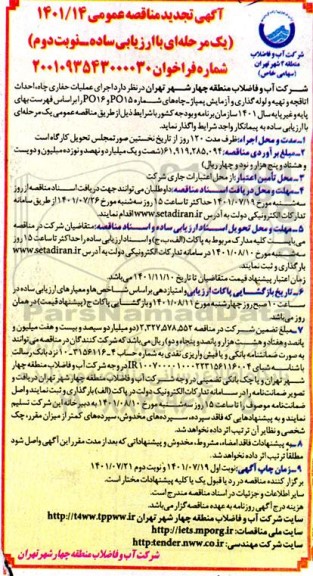 آگهی تجدید مناقصه عمومی ۱۴۰۱/۱۴
(یک مرحله‌ای با ارزیابی ساده ـ نوبت دوم)
شماره فراخوان ۲۰۰۱۰۹۳۵۴۳۰۰۰۰۳۰
شرکت آب و فاضلاب
منطقه ۴ شهر تهران
(سهامی خاص)
شرکت آب و فاضلاب منطقه چهار شهر تهران در نظر دارد اجرای عملیات حفاری چاه، احداث
اتاقچه و تهیه و لوله‌گذاری و آزمایش پمپاژ چاه‌های شماره PO۱۵ و PO۱۶ را بر اساس فهرست بهای
پایه و غیر پایه سال ۱۴۰۱ سازمان برنامه و بودجه کشور با شرایط ذیل از طریق مناقصه عمومی یک مرحله‌ای
با ارزیابی ساده به پیمانکار واجد شرایط واگذار نماید.
۱ـ مدت و محل اجراء: ظرف مدت ۱۲۰ روز از تاریخ نخستین صورتمجلس تحویل کارگاه است
۲ـ مبلغ برآوردی مناقصه: ۶۱,۹۱۹,۲۸۵,۰۹۴ (شصت و یک میلیارد و نهصد و نوزده میلیون و دویست
و هشتاد و پنج هزار و نود و چهار ریال)
۳ـ محل تأمین اعتبار: از محل اعتبارات جاری شرکت
۴ـ مهلت و محل دریافت اسناد مناقصه: داوطلبان می‌توانند جهت دریافت اسناد مناقصه از روز
سه‌شنبه مورخ ۱۴۰۱/۰۷/۱۹ حداکثر تا ساعت ۱۵ روز سه‌شنبه مورخ ۱۴۰۱/۰۷/۲۶ از طریق سامانه
تدارکات الکترونیکی دولت به آدرس www.setadiran.ir اقدام نمایند.
۵ـ مهلت و محل تحویل اسناد ارزیابی ساده و اسناد مناقصه: متقاضیان شرکت در مناقصه
می‌بایست کلیه مدارک مربوط به پاکات (الف، ب، ج) و اسناد ارزیابی ساده را حداکثر تا ساعت ۱۵ روز
سه‌شنبه مورخ ۱۴۰۱/۰۸/۱۰ در سامانه تدارکات الکترونیکی دولت به آدرس www.setadiran.ir
بارگذاری و ثبت نمایند.
زمان اعتبار پیشنهاد قیمت متقاضیان تا تاریخ ۱۴۰۱/۱۱/۱۰ می‌باشد.
۶ـ تاریخ بازگشایی پاکات ارزیابی و امتیازدهی بر اساس شاخص‌ها و معیارهای ارزیابی ساده در
ساعت ۱۰ صبح روز چهارشنبه مورخ ۱۴۰۱/۰۸/۱۱ و بازگشایی پاکات ج (پیشنهاد قیمت) در همان
روز می‌باشد.
۷ـ مبلغ تضمین شرکت در مناقصه ۲,۲۲۷,۵۷۸,۵۵۲ (دو میلیارد و سیصد و بیست و هفت میلیون و
پانصد و هفتاد و هشت هزار و پانصد و پنجاه و دو) ریال می‌باشد که شرکت‌کنندگان در مناقصه می‌توانند
به صورت ضمانتنامه بانکی و یا فیش واریزی نقدی به شماره حساب نزد بانک رسالت
با شناسه شبای در وجه شرکت آب و فاضلاب منطقه چهار
شهر تهران و یا چک بانکی تضمینی در وجه شرکت آب و فاضلاب منطقه چهار شهر تهران دریافت و
تصویر ضمانت‌نامه را در سامانه تدارکات الکترونیک دولت در پاکت (الف) بارگذاری و ثبت نمایند و اصل
ضمانت‌نامه موصوف را تا ساعت ۱۵ روز سه‌شنبه مورخ ۱۴۰۱/۰۸/۱۰ به دبیرخانه این شرکت تسلیم
نمایند و به پیشنهادهایی که فاقد سپرده، سپرده‌های مخدوش، سپرده‌های کمتر از میزان مقرر، چک
شخصی و نظایر آن ترتیب اثر داده نخواهد شد.
۸ـ به پیشنهادات فاقد امضاء، مشروط، مخدوش و پیشنهاداتی که بعد از مدت مقرر این آگهی واصل شود
مطلقاً ترتیب اثر داده نخواهد شد.
۹ـ زمان چاپ آگهی: نوبت اول ۱۴۰۱/۰۷/۱۹ و نوبت دوم ۱۴۰۱/۰۷/۲۱
برگزار کننده مناقصه در رد یا قبول یک یا کلیه پیشنهادات مختار است.
سایر اطلاعات و جزئیات در اسناد مناقصه مندرج است.
هزینه درج آگهی روزنامه به عهده مناقصه‌گزار می‌باشد.
سایت شرکت آب و فاضلاب منطقه چهار شهر تهران http://t4ww.tppww.ir
سایت ملی مناقصات: http://iets.mporg.ir
سایت شرکت مهندسی: http:tender.nww.co.ir
شرکت آب و فاضلاب منطقه چهار شهر تهران